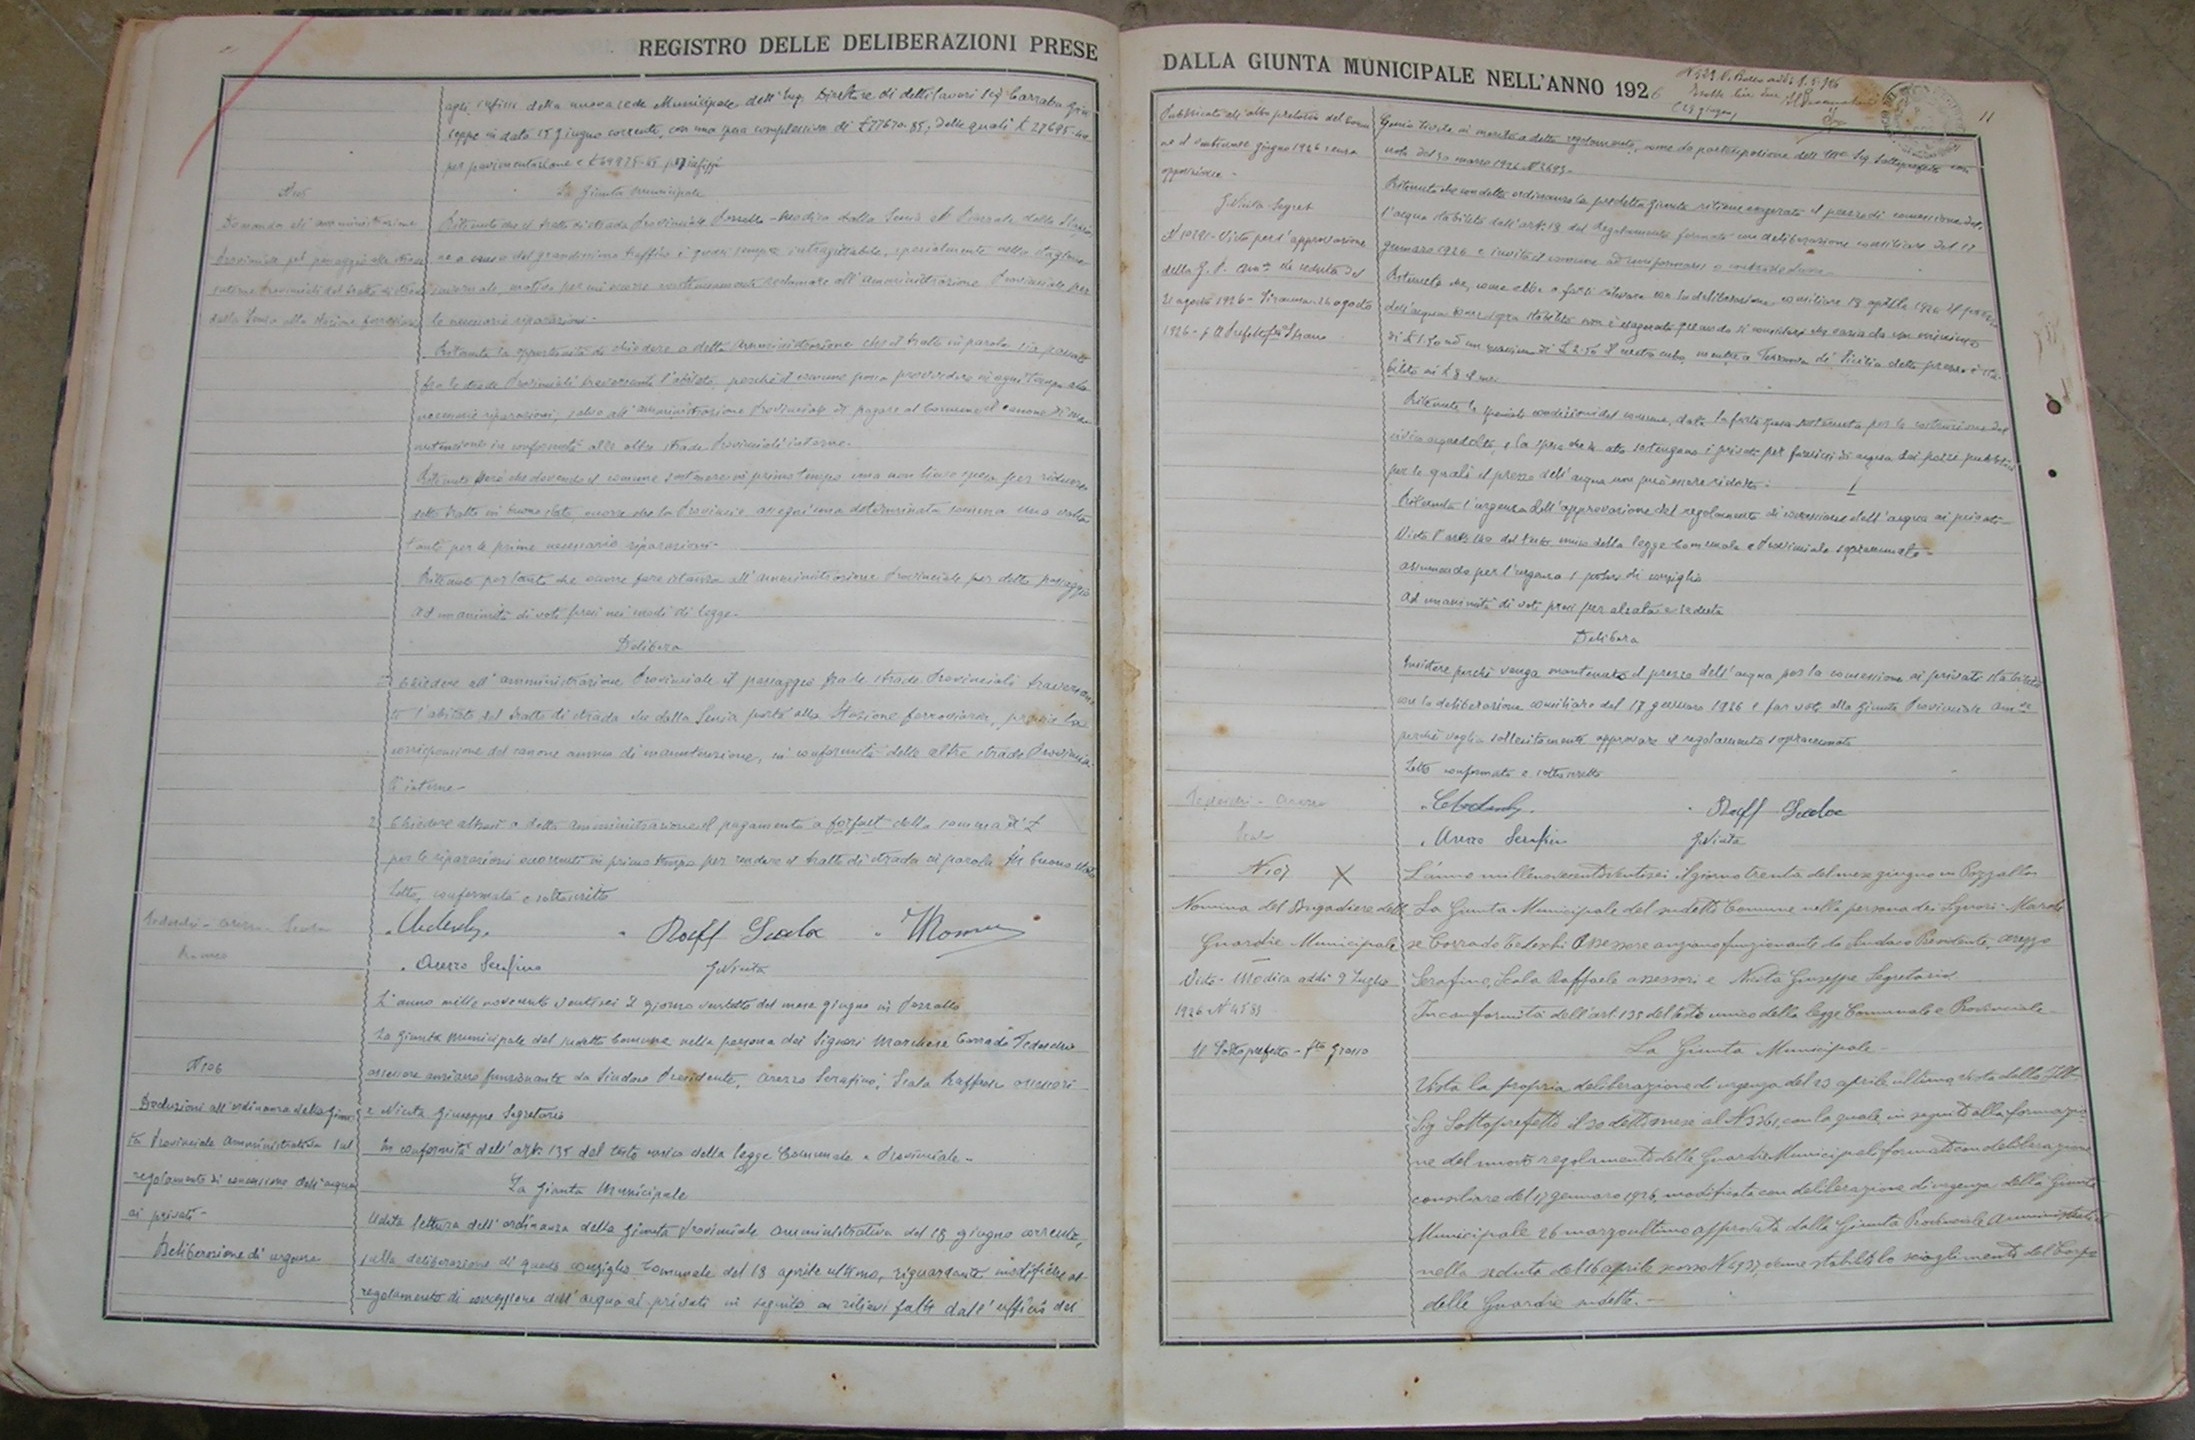 REGISTRO DELLE DELIBERAZIONI PRESE
agli infissi della nuova sede Municipale dell'Ing. Direttore di detti lavori Sig. Carrata Giu
seppe in data 15 giugno corrente, con una spesa complessiva di £ 77670.85, delle quali £ 27695.40
per pavimentazione e per infissi
La Giunta Municipale
Domanda all'amministrazione
Provinciale pel passaggio alle strade
interne Provinciali del tratto di strada
dalla Senia alla stazione ferroviaria
Ritenuto che il tratto di strada Provinciale Pozzallo-Modica dalla Senia al Piazzale della Stazio
ne a causa del grandissimo traffico è quasi sempre intragittabile, specialmente nella stagione
invernale, motivo per cui occorre continuamente reclamare all'Amministrazione Provinciale per
le necessarie riparazioni-
Ritenuta la opportunità di chiedere a detta Amministrazione che il tratto in parola sia passato
fra le strade Provinciali traversanti l'abitato, perchè il comune possa provvedere in ogni tempo alle
necessarie riparazioni, salvo all'amministrazione Provinciale di pagare al Comune il canone di ma
nutenzione in conformità alle altre strade Provinciali interne.
Ritenuto però che dovendo il comune sostenere in primo tempo una non lieve spesa per ridurre
detto tratto in buono stato, occorre che la Provincia assegni una determinata somma una volta
tanto per le prime necessarie riparazioni-
Ritenuto pertanto che occorre fare istanza all'amministrazione Provinciale per detto passaggio
Ad unanimità di voti presi nei modi di legge-
Delibera
1° Chiedere all'amministrazione Provinciale il passaggio fra le strade Provinciali traversan
ti l'abitato del tratto di strada che dalla Senia porta alla Stazione ferroviaria, previa la
corresponsione del canone annuo di manutenzione, in conformità delle altre strade Provincia
li interne-
2° Chiedere altresì a detta amministrazione il pagamento a forfait della somma di £
per le riparazioni occorrenti in primo tempo per rendere il tratto di strada in parola in buono stato
Letto, confermato e sottoscritto
Tedeschi - Arezzo - Scala
Raff Scala
Arezzo Serafino
G Nicita
L'anno millenovecentoventisei Il giorno ventotto del mese giugno in Pozzallo
La Giunta Municipale del sudetto Comune nella persona dei Signori Marchese Corrado Tedeschi
N 106
assessore anziano funzionante da Sindaco Presidente, Arezzo Serafino, Scala Raffaele assessori
e Nicita Giuseppe Segretario
Deduzioni all'ordinanza della Giun
ta Provinciale Amministrativa sul
regolamento di concessione dell'acqua
ai privati-
Deliberazione di urgenza
In conformità dell'art. 135 del testo unico della legge Comunale e Provinciale-
La Giunta Municipale
Udita lettura dell'ordinanza della Giunta Provinciale Amministrativa del 18 giugno corrente,
sulla deliberazione di questo consiglio Comunale del 18 aprile ultimo, riguardante modifiche al
regolamento di concessione dell'acqua ai privati in seguito ai rilievi fatti dall'ufficio del
DALLA GIUNTA MUNICIPALE NELL'ANNO 1926
11
Pubblicata all'albo pretorio del Comu
ne il giugno 1926 senza
opposizione-
G Nicita Segret
N 10291- Visto per l'approvazione
della G. P. Amva in seduta del
21 agosto 1926 - Siracusa 26 agosto
1926 - p. Il Prefetto
Genio Civile in merito a detto regolamento, come da partecipazione dell'Illmo Sig. Sottoprefetto con
nota del 30 marzo 1926 N 2693-
Ritenuto che con detta ordinanza la predetta Giunta ritiene esagerato il prezzo di concessione del
l'acqua stabilito dall'art. 18 del Regolamento formato con deliberazione consiliare del 17
gennaro 1926 e invita il comune ad uniformarsi o controdedurre-
Ritenuto che, come ebbe a farsi rilevare con la deliberazione consiliare 18 aprile 1926 il prezzo
dell'acqua come sopra stabilito non è esagerato quando si consideri che varia da un minimo
di £ 1.50 ad un massimo di £ 2.50 il metro cubo, mentre a Terranova di Sicilia detto prezzo è sta
bilito in £ 8 il mc.
Ritenute le speciali condizioni del comune, data la forte spesa sostenuta per la costruzione del
civico acquedotto, e la spesa che in atto sostengono i privati per fornirsi di acqua dai pozzi pubblici
per le quali il prezzo dell'acqua non può essere ridotto.
Ritenuta l'urgenza dell'approvazione del regolamento di concessione dell'acqua ai privati-
Visto l'art. 140 del testo unico della legge Comunale e Provinciale sopracennato-
Assumendo per l'urgenza i poteri di consiglio
Ad unanimità di voti presi per alzata e seduta
Delibera
Insistere perchè venga mantenuto il prezzo dell'acqua, per la concessione ai privati stabilito
con la deliberazione consiliare del 17 gennaro 1926 e far voti alla Giunta Provinciale Amva
perchè voglia sollecitamente approvare il regolamento sopracennato
Letto confermato e sottoscritto
Tedeschi - Arezzo
Scala
Raff Scala
Arezzo Serafino
G Nicita
N 107
L'anno millenovecentoventisei il giorno trenta del mese giugno in Pozzallo
Nomina del Brigadiere delle
Guardie Municipale
La Giunta Municipale del sudetto Comune nella persona dei Signori: Marche
se Corrado Tedeschi Assessore anziano funzionante da Sindaco Presidente, Arezzo
Visto - Modica addì 9 Luglio
1926 N 4583
Il Sottoprefetto - fto Grasso
Serafino, Scala Raffaele assessori e Nicita Giuseppe Segretario
In conformità dell'art. 135 del testo unico della legge Comunale e Provinciale-
La Giunta Municipale-
Vista la propria deliberazione di urgenza del 23 aprile ultimo, vista dallo Ill.
Sig Sottoprefetto il 30 detto mese al N 3261, con la quale, in seguito alla formazio
ne del nuovo regolamento delle Guardie Municipali formato con deliberazione
consiliare del 17 gennaro 1926, modificata con deliberazione di urgenza della Giunta
Municipale 26 marzo ultimo approvata dalla Giunta Provinciale Amministrativa
nella seduta del 16 aprile scorso N 4937, venne stabilito lo scioglimento del Corpo
delle Guardie sudette.-